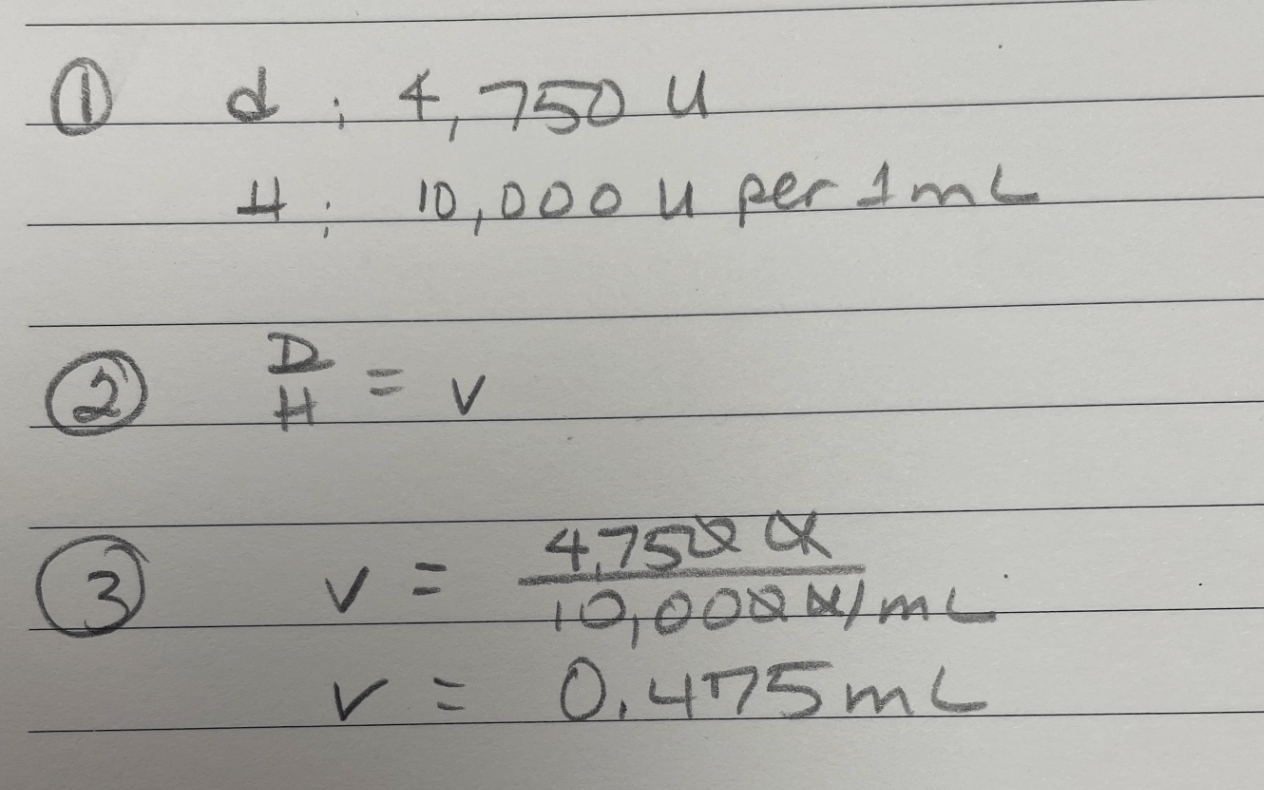 ① d : 4,750 U
H : 10,000 U per 1mL
② D/H = V
③ V = 4,750 U / 10,000 U/mL
V = 0.475 mL